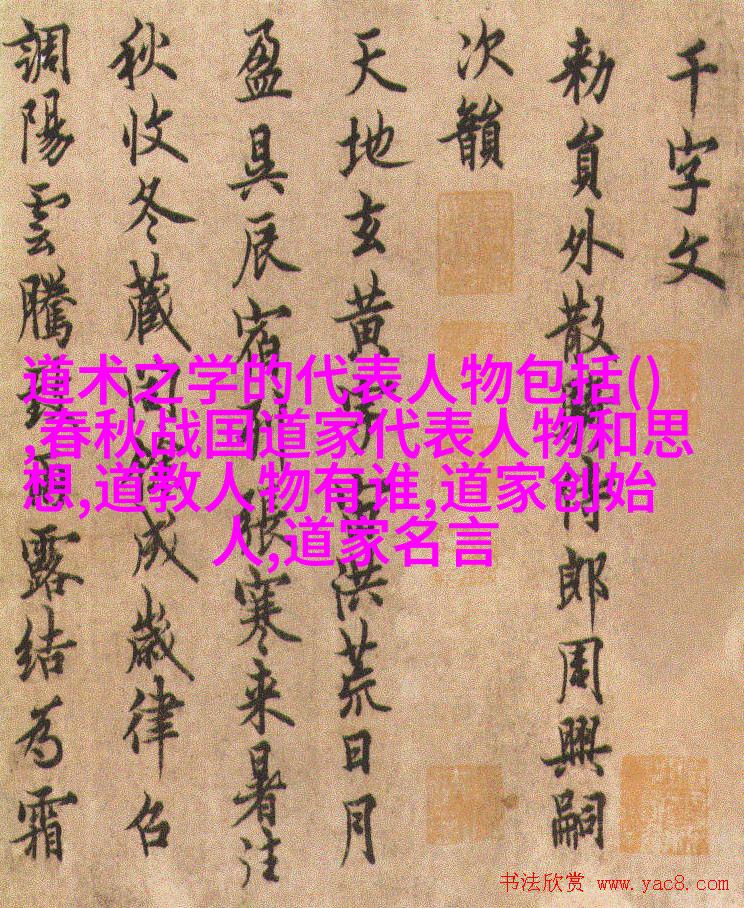 千字文
勅員外散騎侍郎周興嗣
次韻
天地玄黄宇宙洪荒日月
盈昃辰宿列張寒来暑往
秋收冬蔵閏餘成歲律召
調陽雲騰致雨露結為霜
道术之学的代表人物包括()
,春秋战国道家代表人物和思
想,道教人物有谁,道家创始
人,道家名言
书法欣赏 www.yac8.com